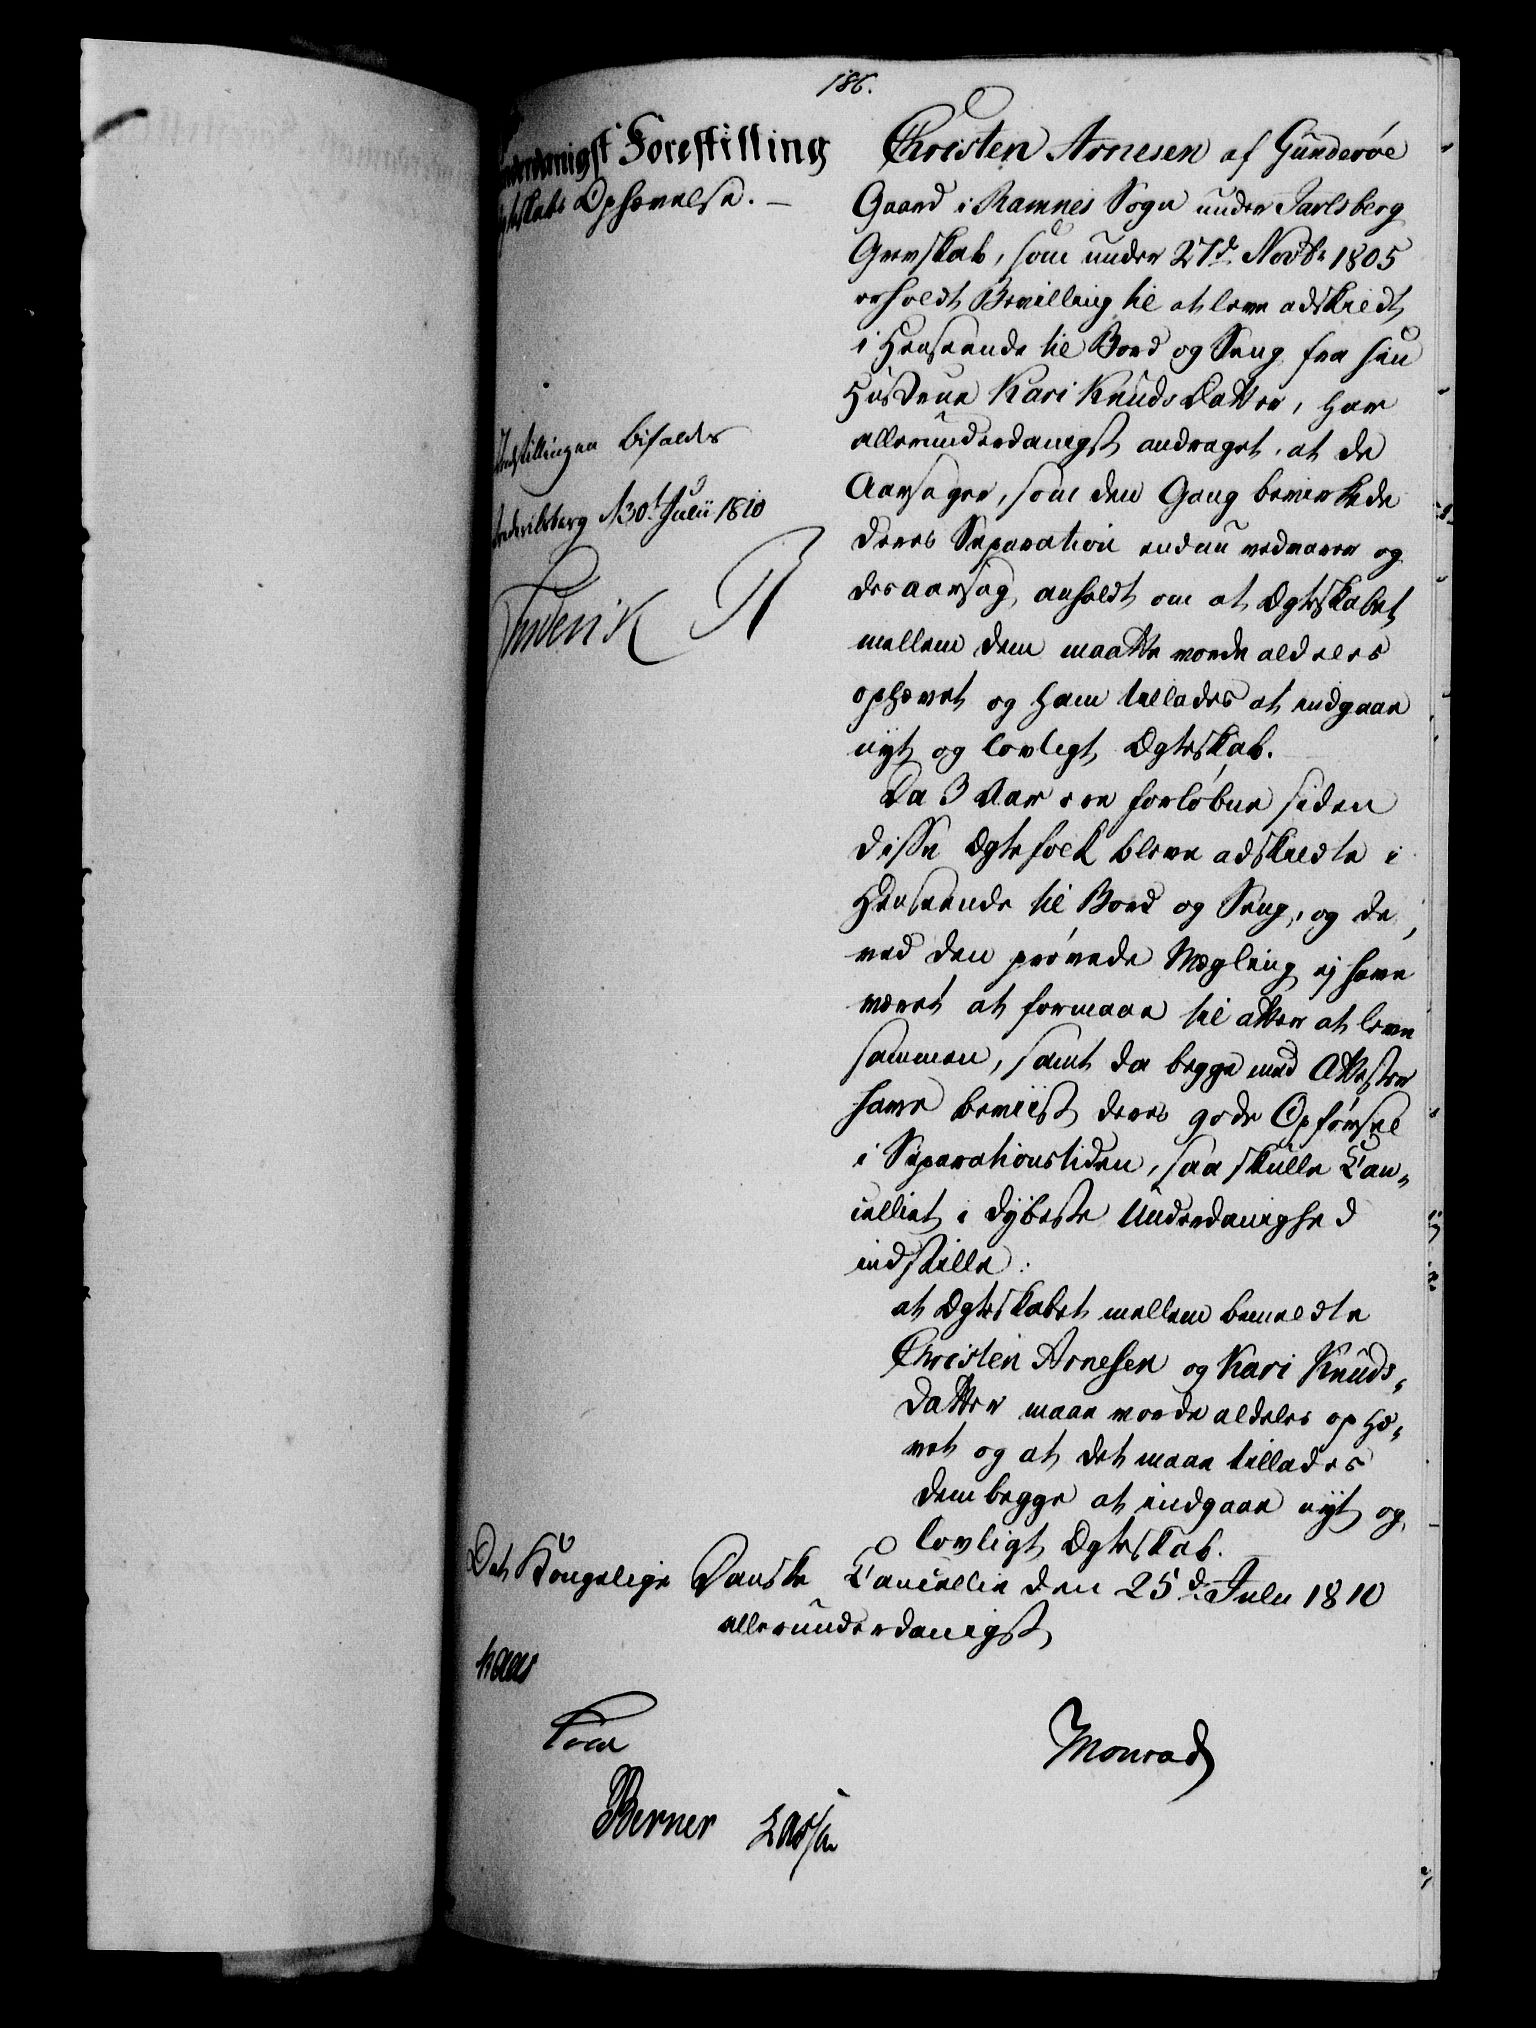 186.
Forestilling
Ophævelse. –
Indstillingen bifaldes
Frederiksberg d 30t Julii 1810
Frederik R
Christen Arnesen af Gunderöe
Gaard i Ramnes Sogn under Jarlsberg
Grevskab, som under 27d Novbr 1805
erholdt Bevilling til at leve adskildt
i Henseende til Bord og Seng fra sin
Hustrue Kari Knuds Datter, har
allerunderdanigst andraget, at de
Aarsager, som den Gang bevirkede
deres Separation endnu vedvarer og
desaarsag anholdt om at Ægteskabet
mellem dem maatte vorde aldeles
ophævet og ham tillades at indgaae
nyt og lovligt Ægteskab.
Da 3 Aar ere forløbne siden
disse Ægtefolk bleve adskildte i
Henseende til Bord og Seng, og de
ved den prøvede Mægling ej have
været at formaae til atter at leve
sammen, samt da begge med Attester
have beviist deres gode Opførsel
i Separationstiden, saa skulle Can-
celliet i dybeste Underdanighed
indstille:
at Ægteskabet mellem bemeldte
Christen Arnesen og Kari Knuds-
datter maae vorde aldeles ophæ-
vet og at det maae tillades
dem begge at indgaae nyt og
lovligt Ægteskab.
Det Kongelige Danske Cancellie den 25d Julii 1810
allerunderdanigst
Kaas
Berner Lassen
Monrad